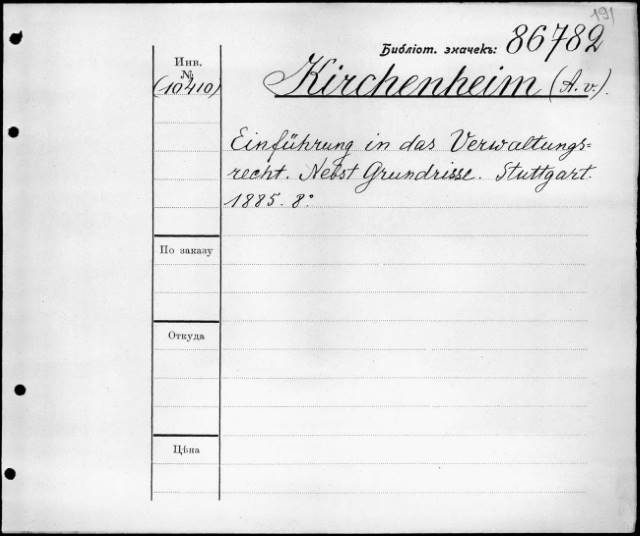 191
Библіот. значекъ: 86782
Инв.
№
(10410)
Kirchenheim (A. v.).
Einführung in das Verwaltungs=
recht. Nebst Grundrisse. Stuttgart.
1885. 8°
По заказу
Откуда
Цѣна